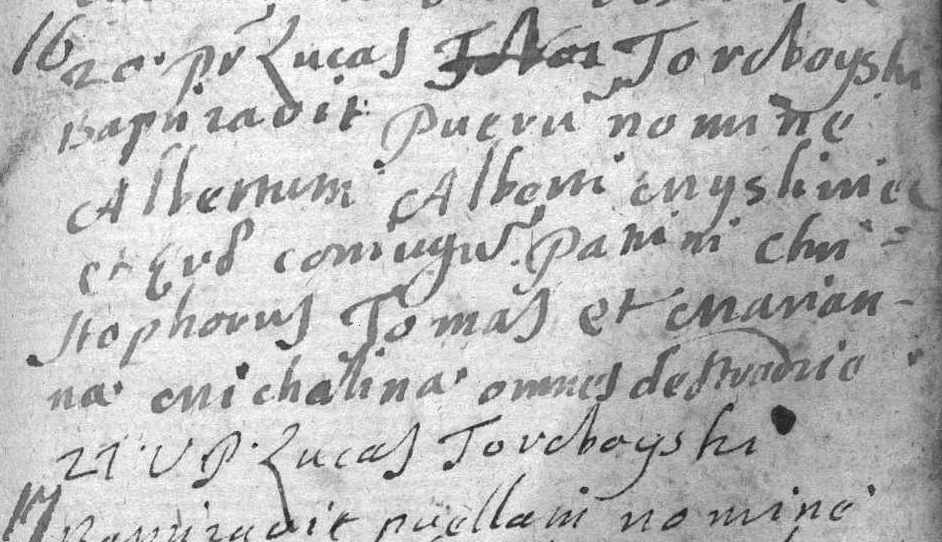 16
20 pr Lucas Torchoyski
Baptizavit Pueru nomine
Albertum Alberti Myslinie
et coniugu Patrini Chri=
stophorus Tomas et Marian-
na Michalina omnes de
21 V P Lucas Torchoyski
17 Baptizavit puellam nomine